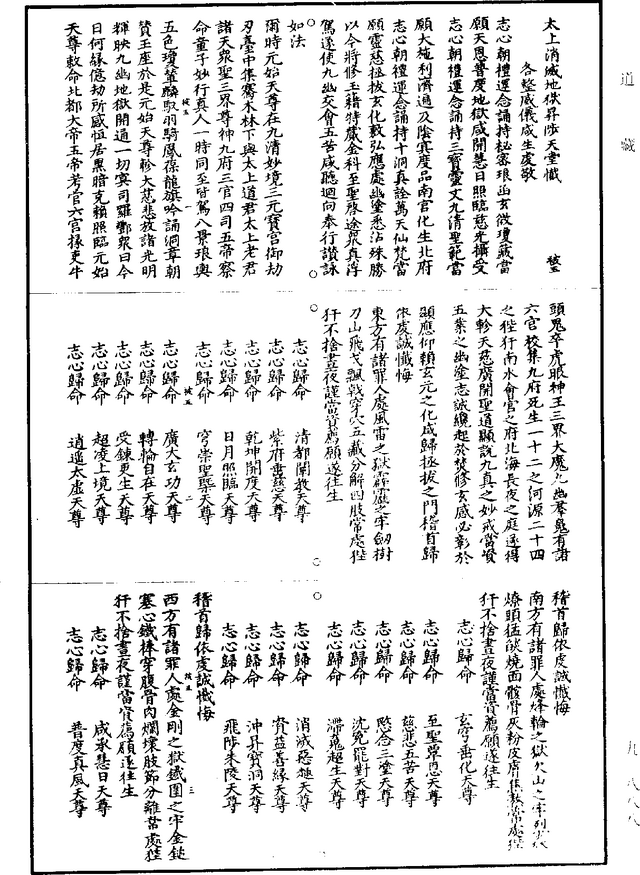 道藏
太上消滅地獄昇陟天堂懺
各整威儀咸生虔敬
志心朝禮運念誦持祕密瓊函玄微瓊藏當
願天恩普度地獄咸開慧日照臨慈光攝受
志心朝禮運念誦持三寶靈文九清聖範當
願大施利濟過及陰寒度品南宮化生北府
志心朝禮運念誦持十洞真詮萬天仙梵當
願靈慈拯拔玄化敷弘應處幽塗悉沾殊勝
以今將修玉籍特荐金科至聖啓途衆真浮
駕遂使九幽交會五苦咸聽迴向奉行讚詠
如法
爾時元始天尊在九清妙境三元寶宮御劫
刃臺中集騫木林下與太上道君太上老君
諸天衆聖三界尊神九府三官四司五帝察
命童子妙行真人一時同至皆駕八景琅輿
五色瓊輦驂馭羽騎鳳葆龍旗吟誦洞章朝
贊玉座於是元始天尊軫大慈悲放諸光明
輝映九幽地獄開通一切冥司羅酆衆曰今
日何緣億劫所感恒居黑暗克賴照臨元始
天尊敕命北都大帝五帝考官六宮掾吏牛
頭鬼卒虎眼神王三界大魔九幽羣鬼有諸
六宮校集九府死生一十二之河源二十四
之狴犴南水會宮之府北海長夜之庭遂得
大軫天慈廣開聖道顯說九真之妙戒當資
五業之幽塗志誠纔起於焚修玄感必彰於
顯應仰賴玄元之化咸歸拯拔之門稽首歸
依虔誠懺悔
東方有諸罪人處風雷之獄霹靂之牢劒樹
刀山飛戈飄戟穿穴五藏分解四肢常處狴
犴不捨晝夜謹當資薦願遂往生
志心歸命 清都闡教天尊
志心歸命 紫府垂慈天尊
志心歸命 乾坤開度天尊
志心歸命 日月照臨天尊
志心歸命 穹崇聖學天尊
志心歸命 廣大玄功天尊
志心歸命 轉輪自在天尊
志心歸命 受鍊更生天尊
志心歸命 超凌上境天尊
志心歸命 逍遙太虛天尊
稽首歸依虔誠懺悔
南方有諸罪人處烽輪之獄火山之牢烈火
燎頭猛燄燒面髓骨灰粉皮膚焦敗常處狴
犴不捨晝夜謹當資薦願遂往生
志心歸命 玄穹垂化天尊
志心歸命 至聖覃恩天尊
志心歸命 慈悲五苦天尊
志心歸命 愍念三塗天尊
志心歸命 沈寃罷對天尊
志心歸命 滯魂超生天尊
志心歸命 消滅惡趣天尊
志心歸命 資益善緣天尊
志心歸命 沖昇寶洞天尊
志心歸命 飛陟朱陵天尊
稽首歸依虔誠懺悔
西方有諸罪人處金剛之獄鐵圍之牢金鎚
塞心鐵棒穿腹骨肉爛壞肢節分離常處狴
犴不捨晝夜謹當資薦願遂往生
志心歸命 咸承慧日天尊
志心歸命 普度真風天尊
九八八八